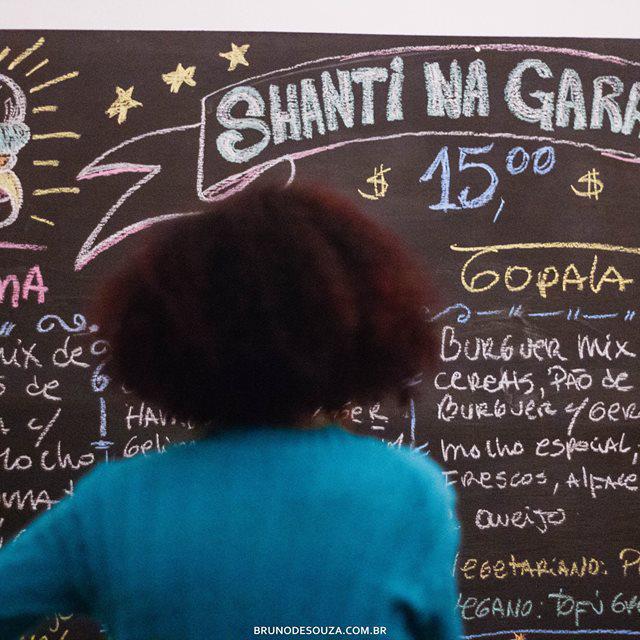 SHANTI NA GARA
$ 15,00 $
MA
GOPALA
MIX DE
DE
C/
MOLHO
BURGUER MIX
CEREAIS, PÃO DE
BURGUER C/ GER
MOLHO ESPECIAL,
FRESCOS, ALFACE
QUEIJO
VEGETARIANO: P
VEGANO: TOFÚ
BRUNODESOUZA.COM.BR